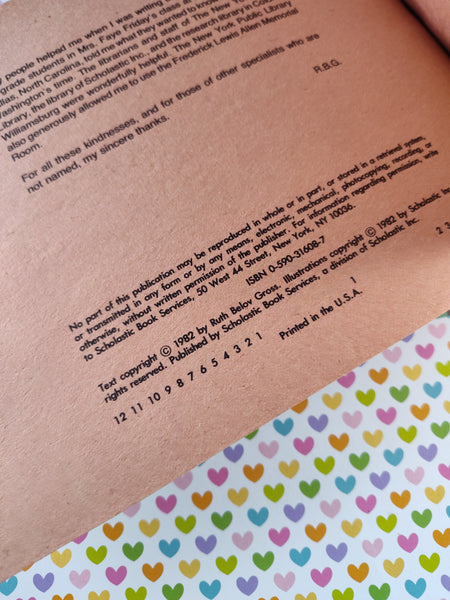 y people helped me when I was writing
grade students in Mrs. Faye Friday's class
llas, North Carolina, told me what they wanted to know
ashington's time. The librarians and staff of The New York
Library, the library of Scholastic Inc., and the research library in Co
Williamsburg were wonderfully helpful. The New York Public
also generously allowed me to use the Frederick Lewis Allen Memorial
Room.
For all these kindnesses, and for those of other specialists who are
not named, my sincere thanks.
R.B.G.
No part of this publication may be reproduced in whole or in part, or stored in a retrieval system,
or transmitted in any form or by any means, electronic, mechanical, photocopying, recording, or
otherwise, without written permission of the publisher. For information regarding permission, write
to Scholastic Book Services, 50 West 44 Street, New York, NY 10036.
ISBN 0-590-31608-7
Text copyright © 1982 by Ruth Belov Gross. Illustrations copyright © 1982 by Scholastic Inc.
rights reserved. Published by Scholastic Book Services, a division of Scholastic Inc.
12 11 10 9 8 7 6 5 4 3 2 1
1
2 3
Printed in the U.S.A.